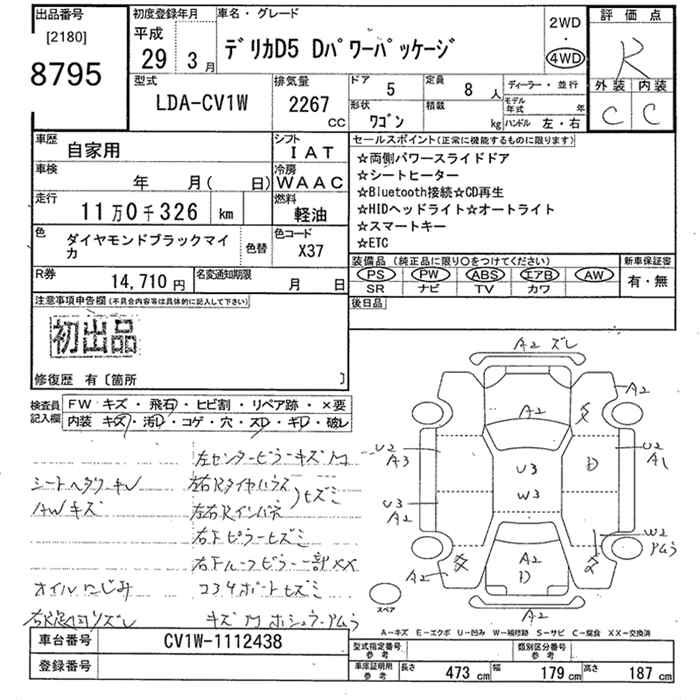 出品番号
[2180]
8795
初度登録年月
平成
29 3月
車名・グレード
デリカD5 Dパワーパッケージ
2WD
4WD
評価点
R
外装 内装
C C
型式
LDA-CV1W
排気量
2267
CC
ドア
5
定員
8 人
ディーラー・並行
形状
ワゴン
積載
kg
モデル年式 年
ハンドル 左・右
車歴
自家用
シフト
IAT
車検
年 月( 日)
冷房
WAAC
走行
11万0千326 km
燃料
軽油
色
ダイヤモンドブラックマイカ
色替
色コード
X37
R券
14,710円
名変通知期限
月 日
セールスポイント(正常に機能するものに限ります)
☆両側パワースライドドア
☆シートヒーター
☆Bluetooth接続☆CD再生
☆HIDヘッドライト☆オートライト
☆スマートキー
☆ETC
装備品 (純正品に限り○をつけてください)
PS PW ABS エアB AW
SR ナビ TV カワ
新車保証書
有・無
後日品
注意事項申告欄(不具合内容等は具体的に記入して下さい)
初出品
修復歴 有〔箇所 〕
検査員記入欄
FW キズ・飛石・ヒビ割・リペア跡・×要
内装 キズ・汚D・コゲ・穴・スD・キD・破レ
左センターピラーキズ
シートヘタリ
AWキズ
左右Rタイヤハウス
左右Rインパネ
ヒズミ
右Fピラーヒズミ
右Fルーフピラー一部XX
オイルにじみ
コアサポートヒズミ
A2 ズレ
A2
A2
U2
A3
U3
A2
U3
W3
D
U2
A1
W2
A2
A2
D
A2
スペア
A-キズ E-エクボ U-凹み W-補修跡 S-サビ C-腐食 XX-交換済
車台番号
CV1W-1112438
登録番号
型式指定番号
参考
類別区分番号
参考
車庫証明用
参考
長さ 473 cm 幅 179 cm 高さ 187 cm